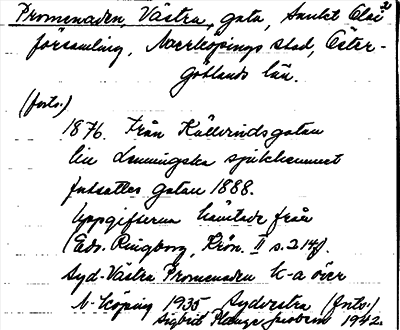 Promenaden, Västra, gata, Sankt Olai 2
församling, Norrköpings stad, Öster-
götlands län.
(forts.)
1876. Från Källvindsgatan
till Lenningska sjukhemmet
fortsattes gatan 1888.
Uppgifterna hämtade från
(Edv. Ringborg, Krön. II s. 214).
Syd-Västra Promenaden K-a över
N-köping 1935 Sydvestra (forts.)
Sigbrit 1942.